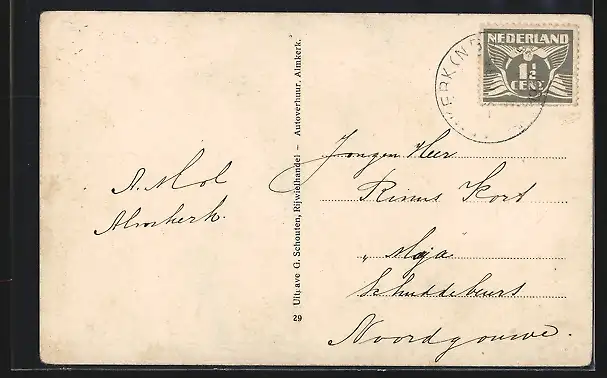 NEDERLAND
1½
CENT
KERK (N.B
A. Mol
Almkerk.
Uitgave G. Schouten, Rijwielhandel – Autoverhuur, Almkerk.
29
Jongen Heer
Rinus Kort
„Maja
Schuddebeurs
Noordgouwe.